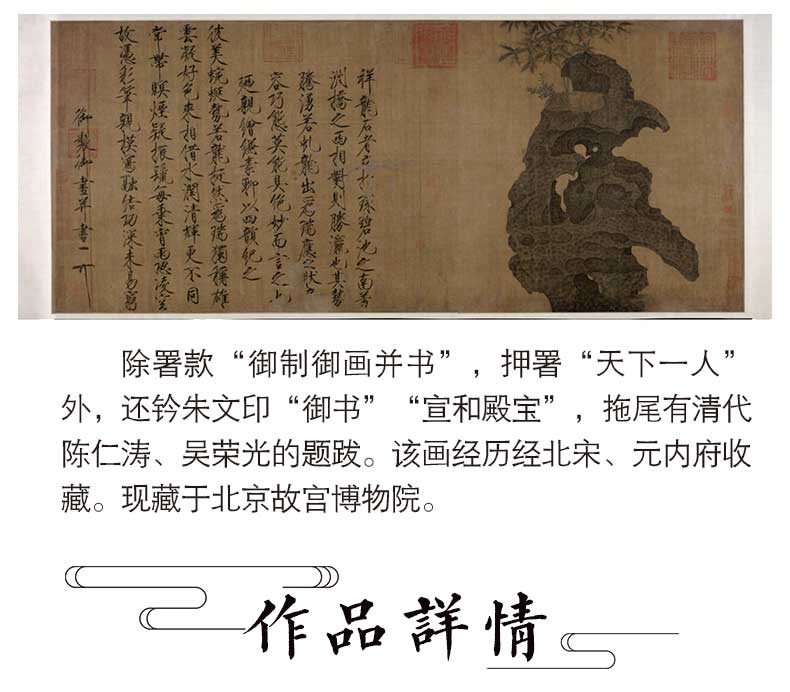 祥龍石者立於環碧池之南芳
洲橋之西相對則勝瀛也其勢
騰湧若虬龍出為瑞應之狀奇
容巧態莫能具絕妙而言之也
廼親繪縑素聊以四韻紀之
彼美蜿蜒勢若龍挺然為瑞獨稱雄
雲凝好色來相借水潤清輝更不同
常帶暝煙疑振鬣每乘宵雨恐凌空
故憑彩筆親模寫融結功深未易窮
御製御畫并書
除署款“御制御画并书”，押署“天下一人”
外，还钤朱文印“御书”“宣和殿宝”，拖尾有清代
陈仁涛、吴荣光的题跋。该画经历经北宋、元内府收
藏。现藏于北京故宫博物院。
作品詳情